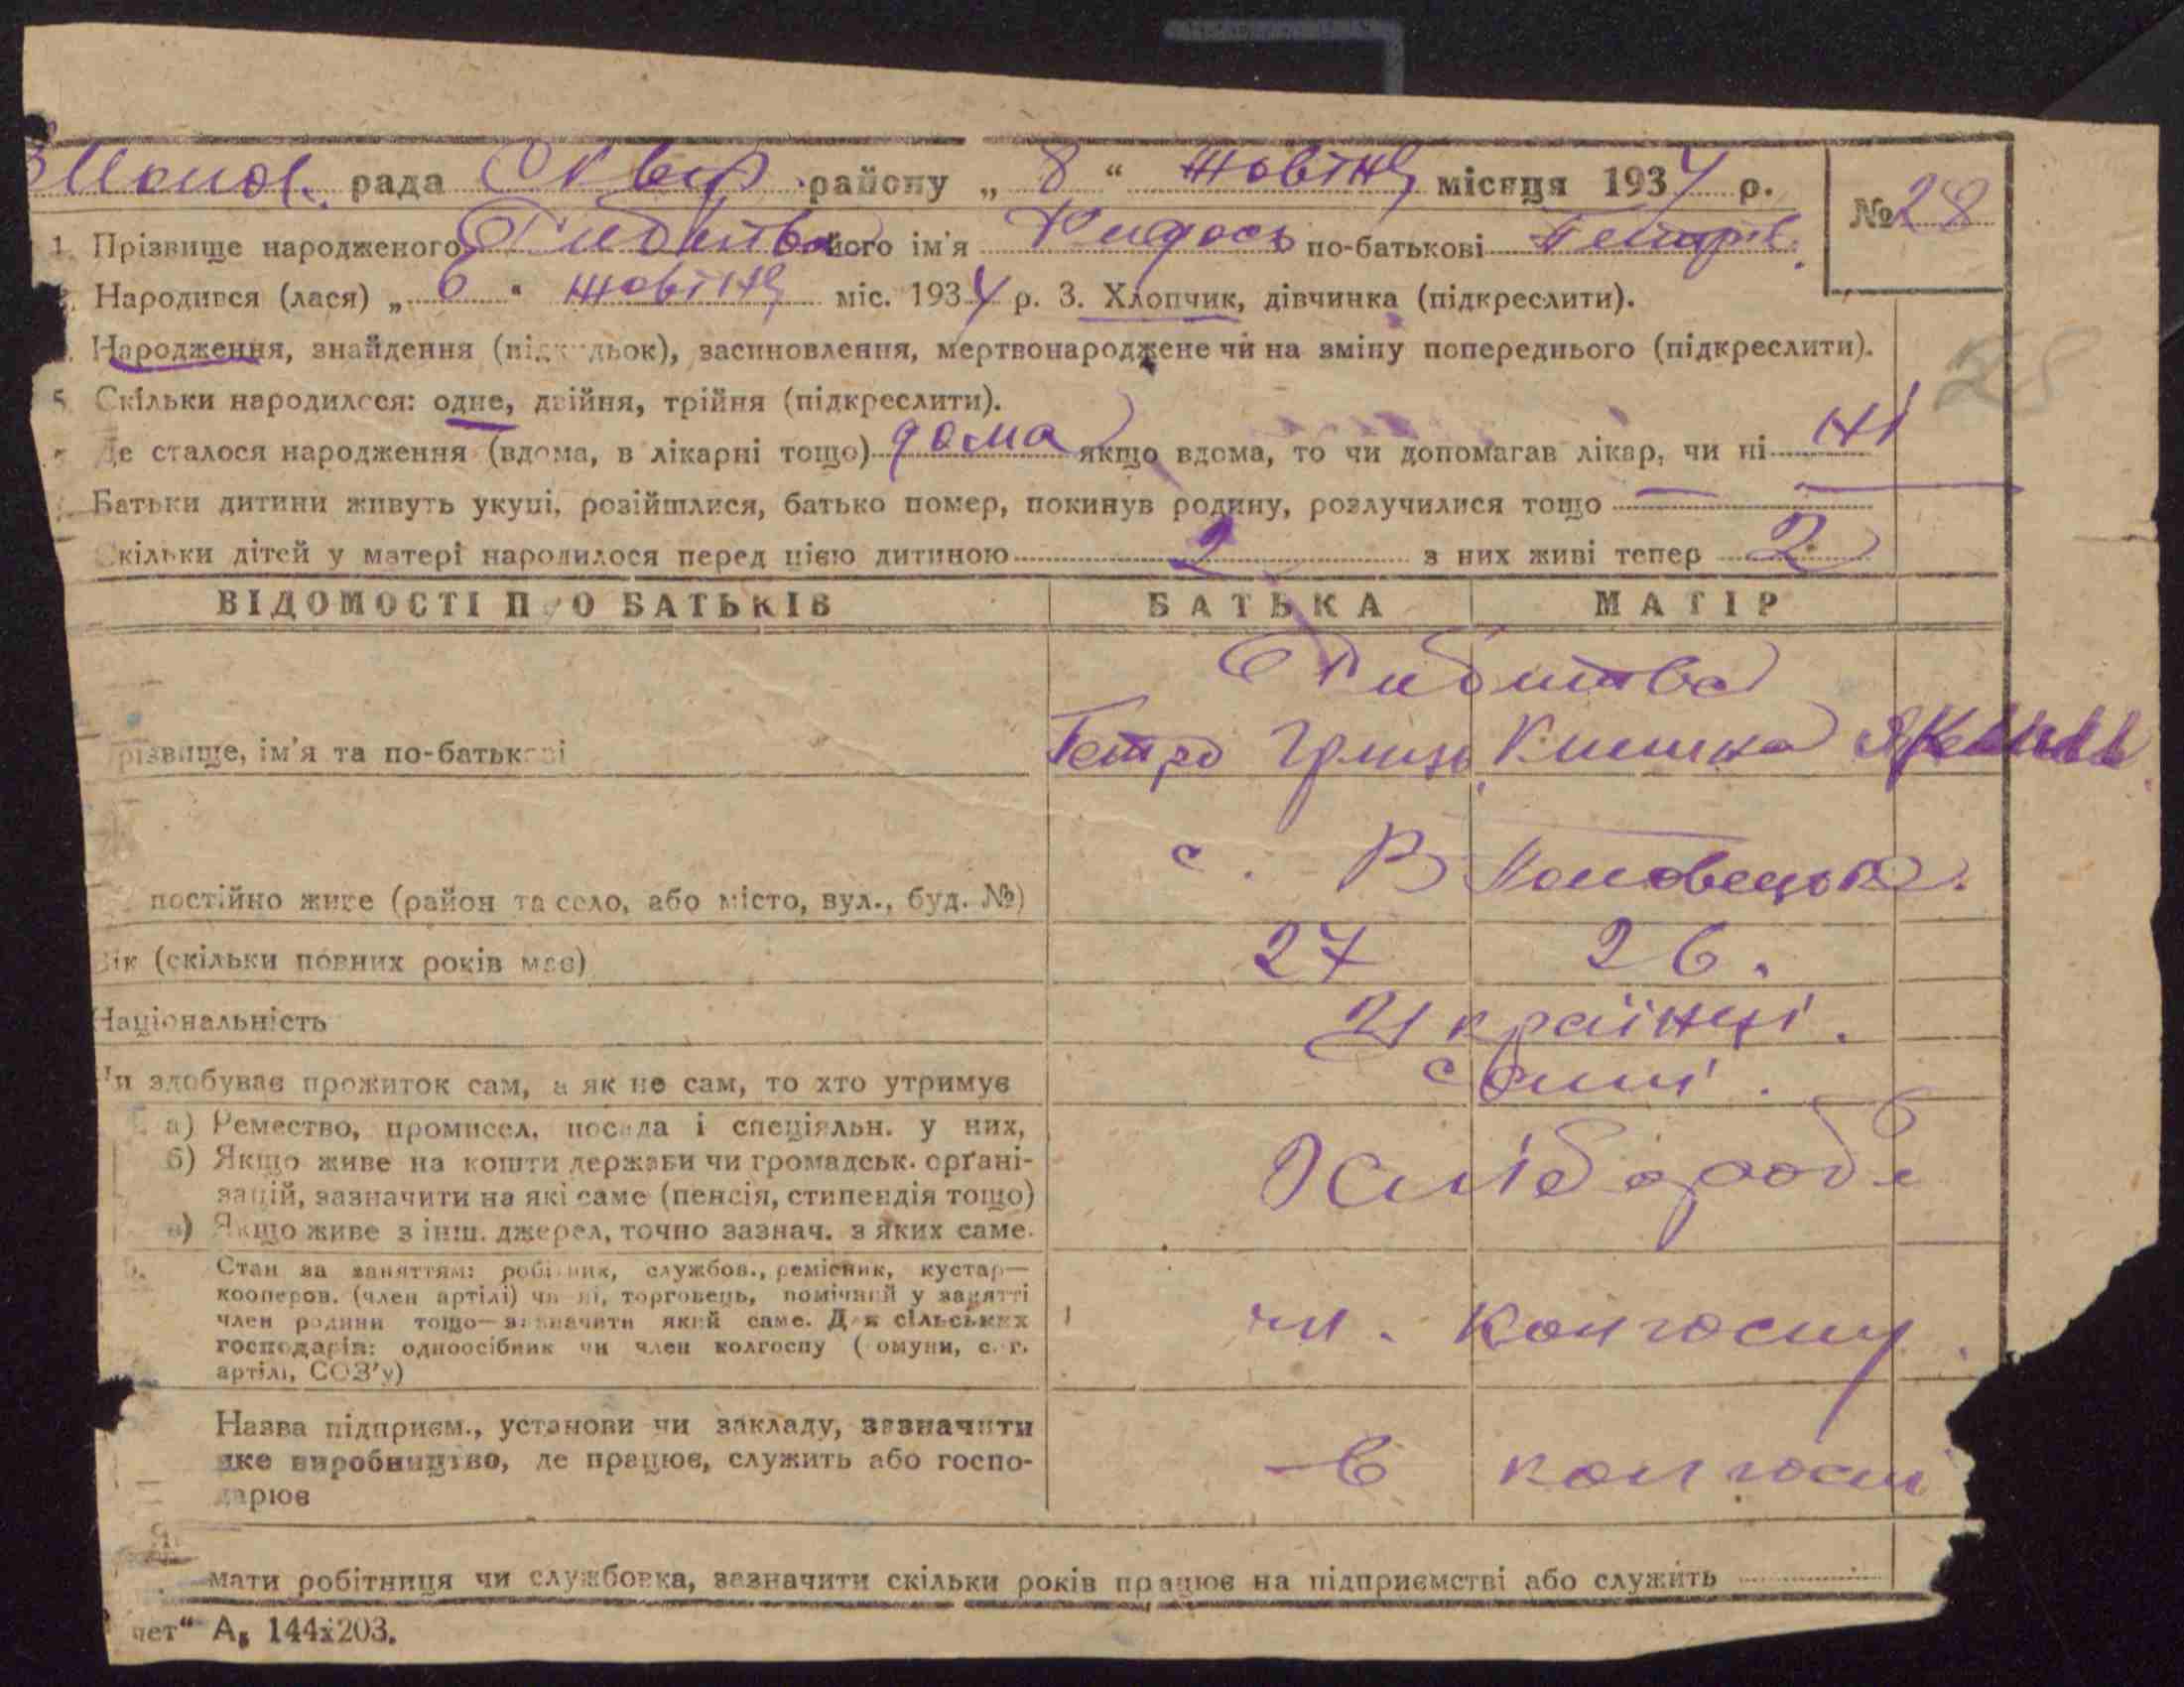 рада Сквир. району „ 8 “ жовтня місяця 1934 р.
№ 28
1. Прізвище народженого його ім'я по-батькові Петров.
Народився (лася) „ 6 “ жовтня міс. 1934 р. 3. Хлопчик, дівчинка (підкреслити).
Народження, знайдення (підкидьок), засиновлення, мертвонароджене чи на зміну попереднього (підкреслити).
28
5 Скільки народилося: одне, двійня, трійня (підкреслити).
Де сталося народження (вдома, в лікарні тощо) дома якщо вдома, то чи допомагав лікар, чи ні ні
Батьки дитини живуть укупі, розійшлися, батько помер, покинув родину, розлучилися тощо
Скільки дітей у матері народилося перед цією дитиною 2 з них живі тепер 2
ВІДОМОСТІ ПРО БАТЬКІВ БАТЬКА МАТІР
різвище, ім'я та по-батькові Петро
постійно живе (район та село, або місто, вул., буд. №) с. В
Вік (скільки повних років має) 27 26.
Національність Українці.
Чи здобуває прожиток сам, а як не сам, то хто утримує самі.
а) Ремество, промисел, посада і спеціяльн. у них,
б) Якщо живе на кошти держави чи громадськ. орґані-
зацій, зазначити на які саме (пенсія, стипендія тощо)
в) Якщо живе з інш. джерел, точно зазнач. з яких саме.
Хлібороб
Стан за заняттям: робітник, службов., ремісник, кустар—
кооперов. (член артілі) чи ні, торговець, помічний у занятті
член родини тощо—зазначити який саме. Для сільських
господарів: одноосібник чи член колгоспу (комуни, с. г.
артілі, СОЗ'у)
чл. колгоспу.
Назва підприєм., установи чи закладу, зазначити
яке виробництво, де працює, служить або госпо-
дарює
в колгоспі
мати робітниця чи службовка, зазначити скільки років працює на підприємстві або служить
чет“ А₅ 144х203.